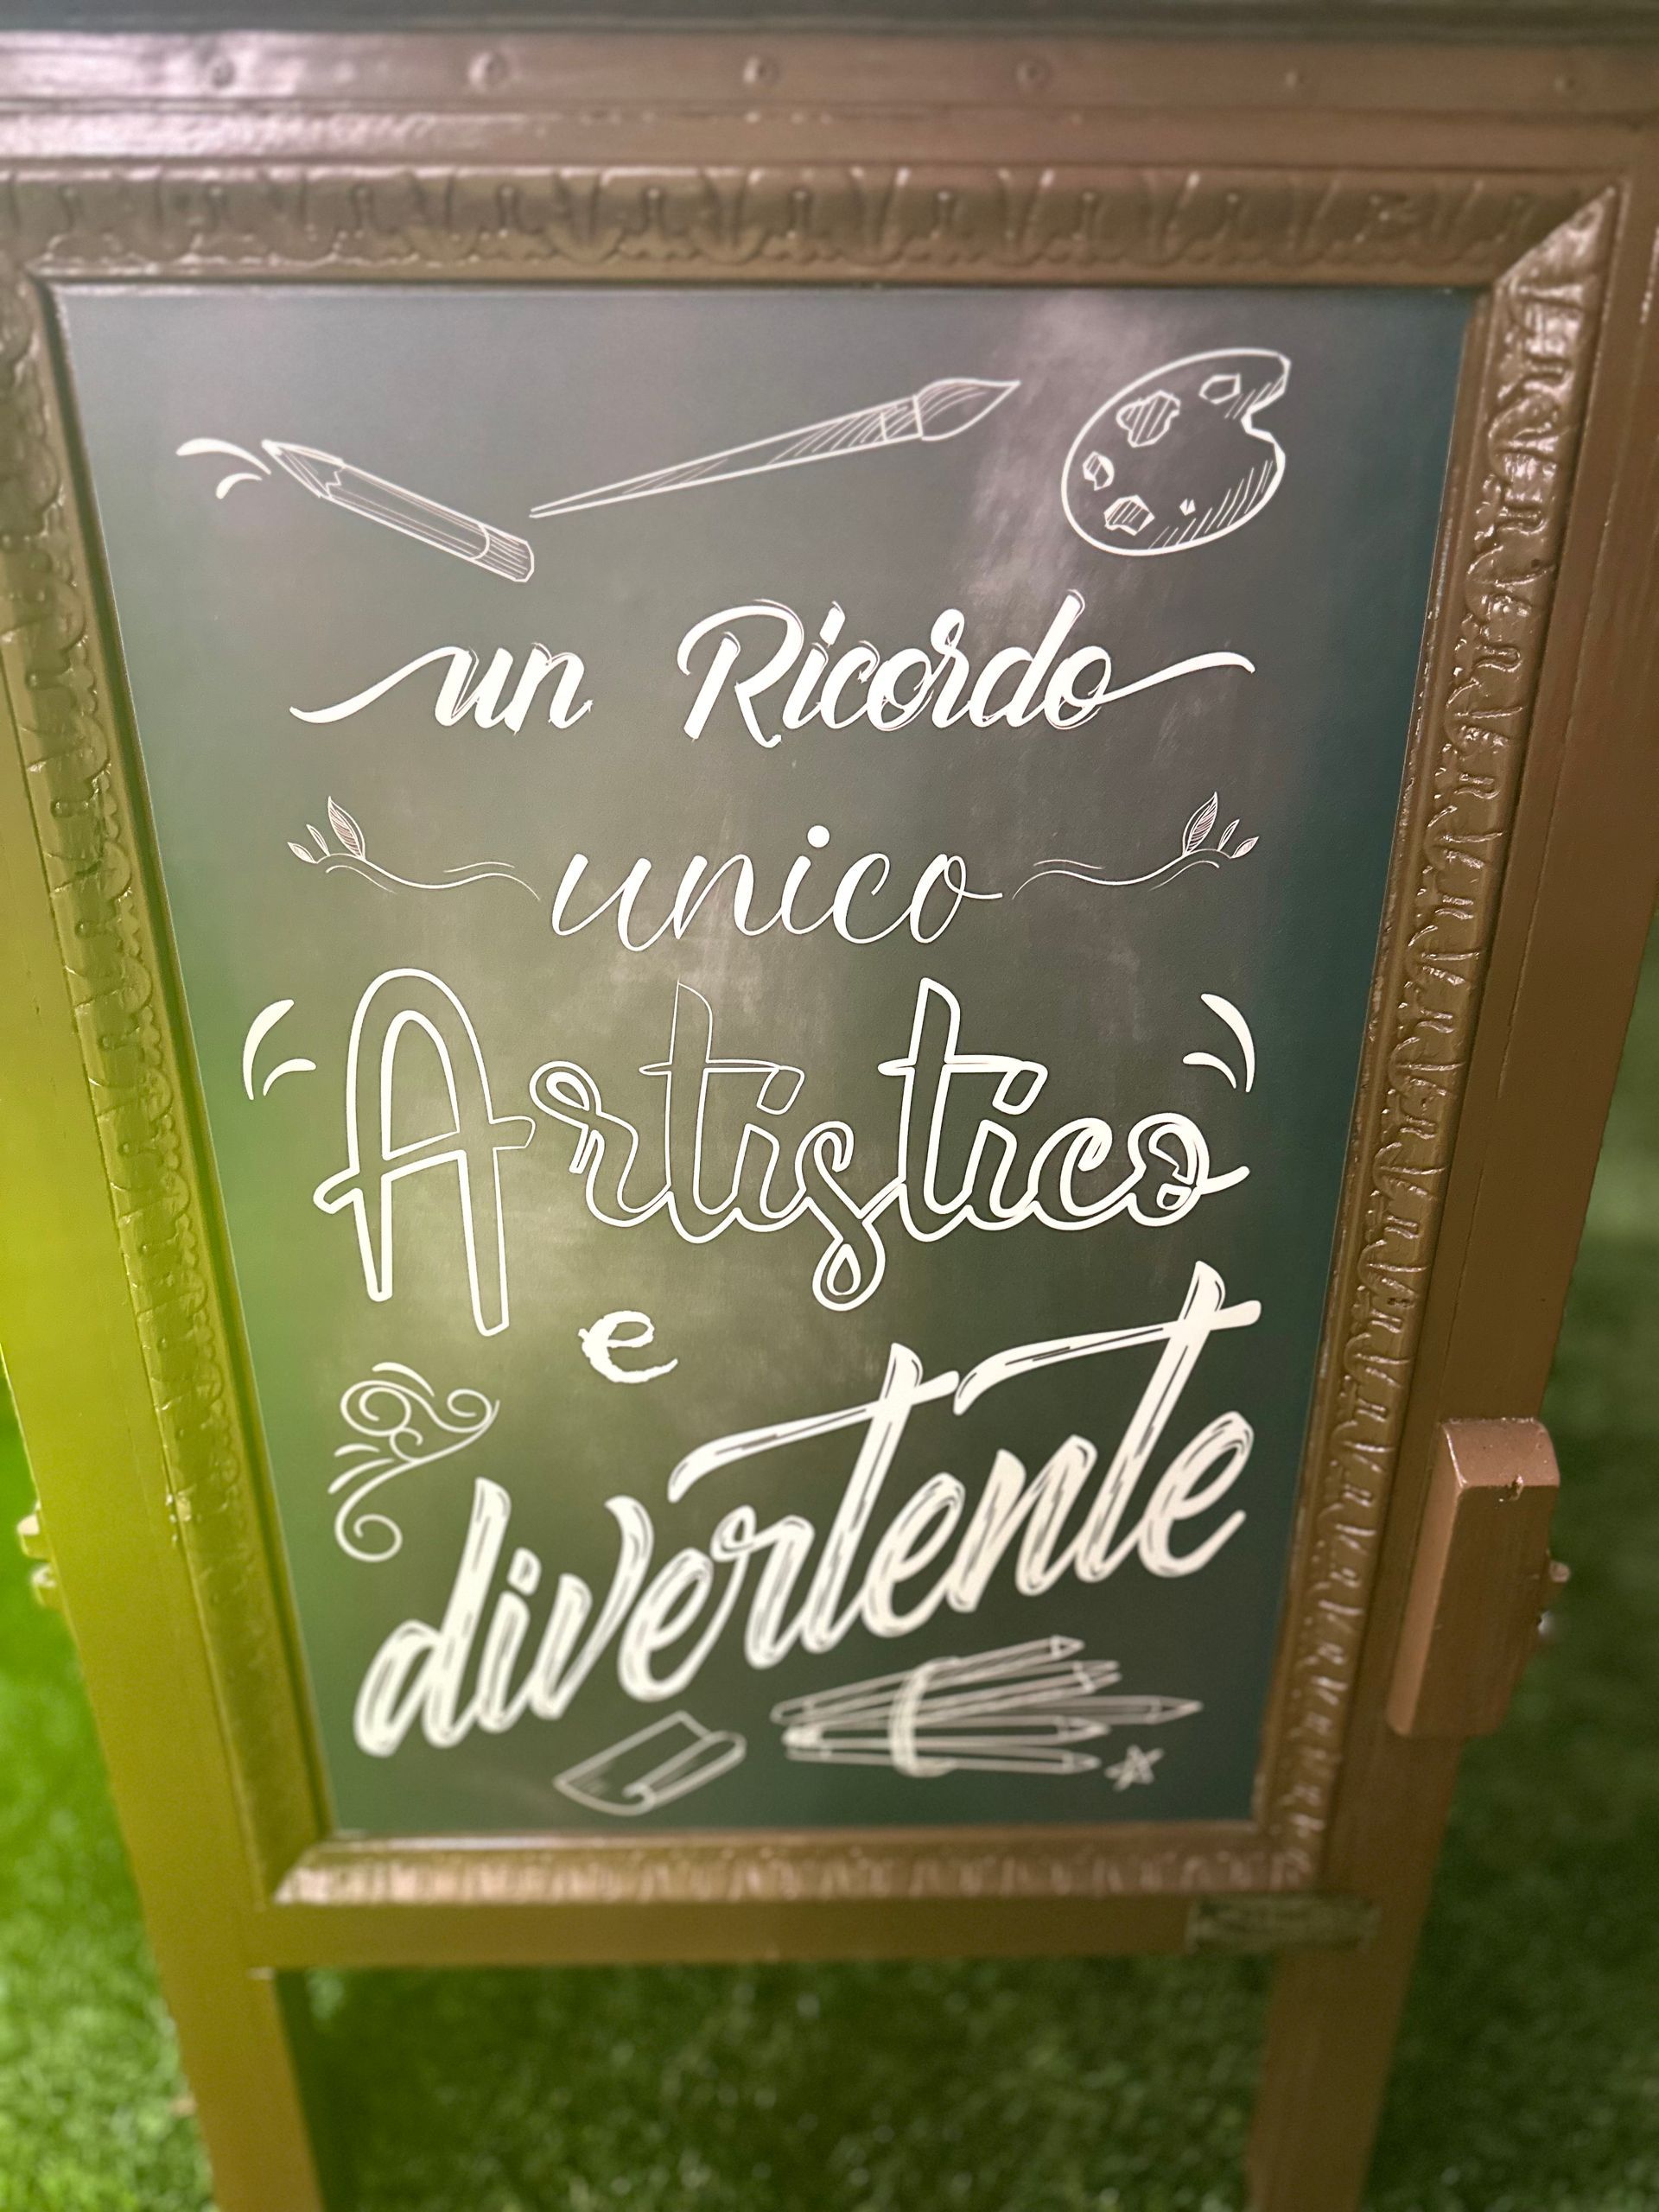 un Ricordo
unico
Artistico
e
divertente